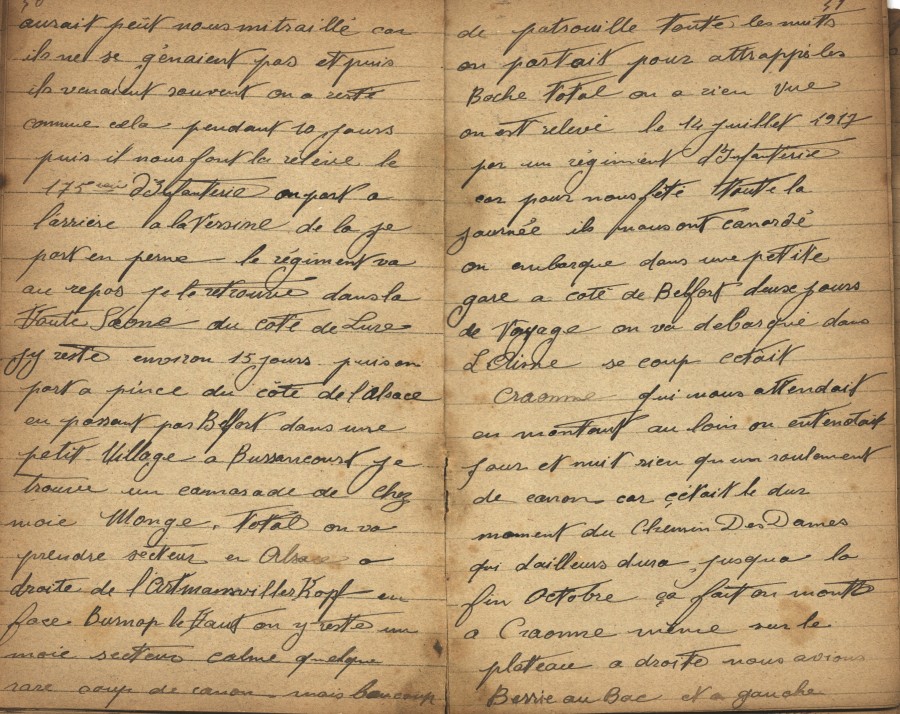 aurait peut nous mitraillé car
ils ne se gênaient pas et puis
ils venaient souvent on a resté
comme cela pendant 10 jours
puis il nous font la relève le
175 d'Infanterie on part a
l'arrière a la Versine de la je
part en perme le régiment va
au repos je le retrouve dans la
Haute Saone du coté de Lure
j'y reste environ 15 jours puis on
part a pince du côté de l'Alsace
en passant par Belfort dans une
petit Village a Bussancourt je
trouve un camarade de chez
moie Monge. total on va
prendre secteur en Alsace a
droite de l'Artmansviller Kopf en
face Burnop le Haut on y reste un
moie secteur calme quelque
rare coup de canon mais beaucoup
de patrouille toute les nuits
on partait pour attrappé les
Boche total on a rien vue
on est relevé le 14 juillet 1917
par un régiment d'Infanterie
car pour nous fêté ttoute la
journée ils nous ont canardé
on embarque dans une petite
gare a coté de Belfort deux jours
de Voyage on va debarqué dans
L'Aisne se coup cetait
Craonne qui nous attendait
en montant au loin on entendait
jour et nuit rien qu'un roulement
de canon car c'était le dur
moment du Chemin Des Dames
qui d'ailleurs dura jusqua la
fin Octobre ça fait on monte
a Craonne même sur le
plateau a droite nous avions
Berrie au Bac et a gauche